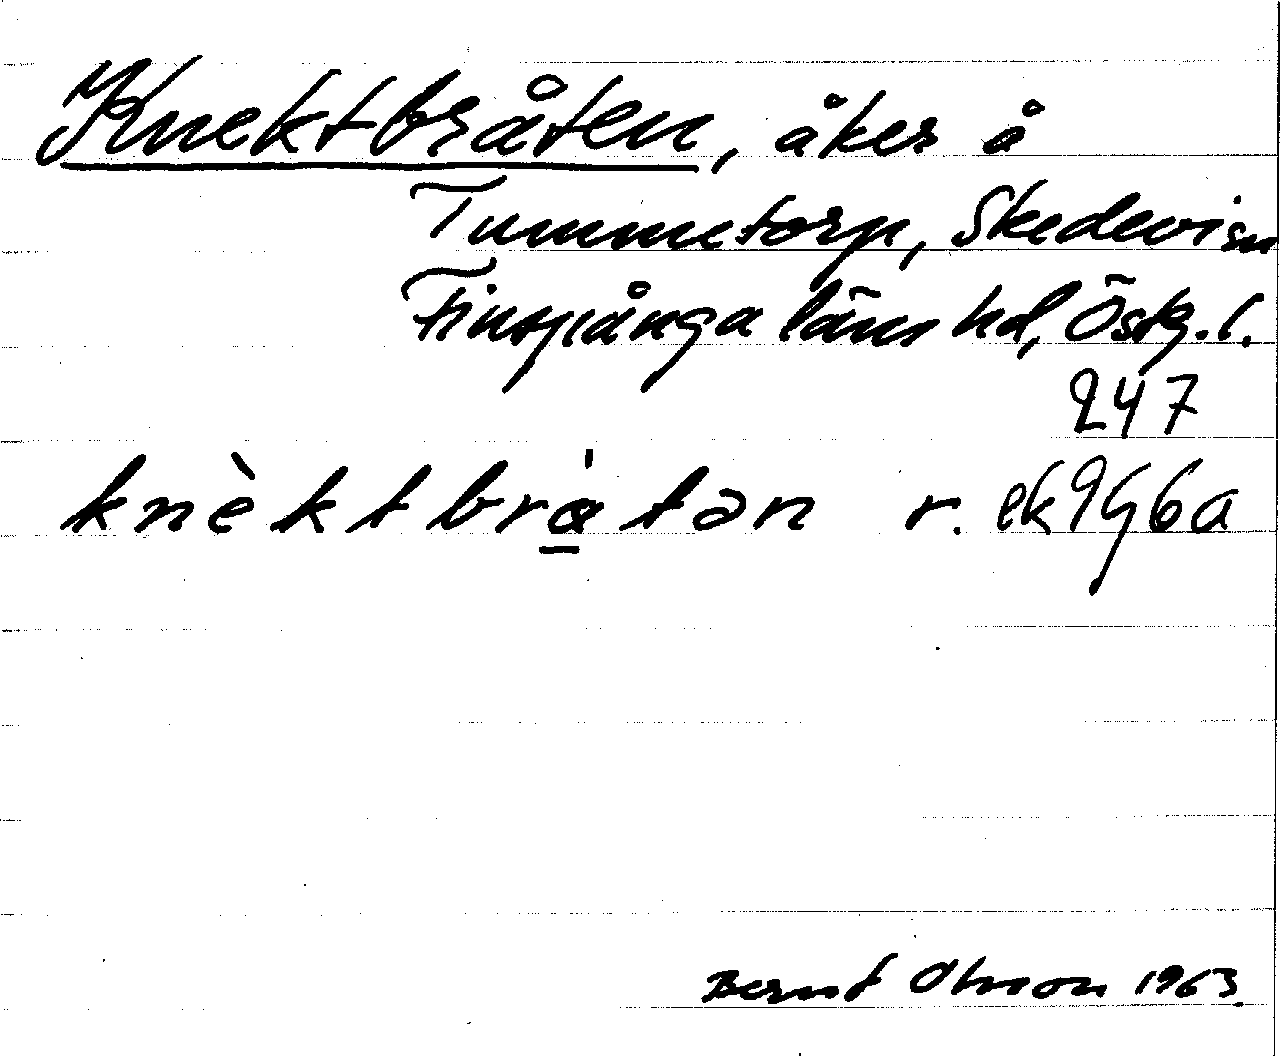 Knektbråten, åker å
Tummetorp, Skedevi sn
Finspånga läns hd, Östg. l.
247
knèktbrå̱tən r. ek 9G6a
Bernt Olsson 1963